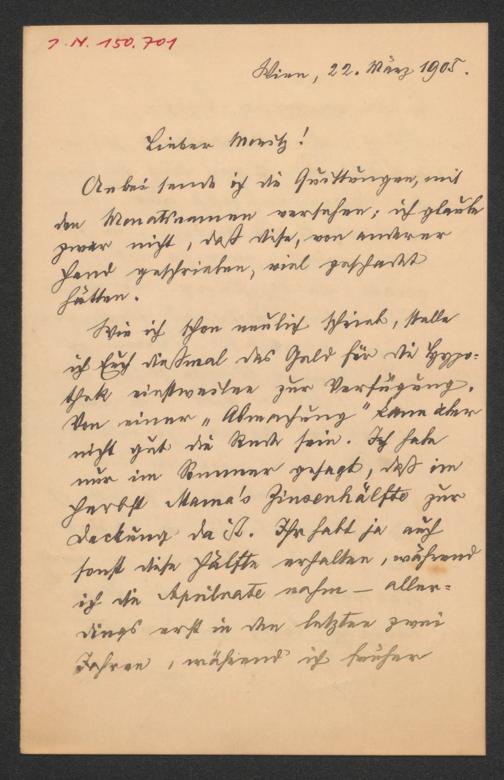 J. N. 150.701
Wien, 22. März 1905.
Lieber Moritz!
Anbei sende ich die Quittungen, mit
den Monatsnamen versehen; ich glaube
zwar nicht, daß diese, von anderer
Hand geschrieben, viel geschadet
hätten.
Wie ich schon neulich schrieb, stelle
ich Euch diesmal das Geld für die Hypo-
thek einstweilen zur Verfügung.
Von einer „Abmachung" kann aber
nicht gut die Rede sein. Ich habe
nur im Sommer gesagt, daß im
Herbst Mama's Zinsenhälfte zur
Deckung da ist. Ihr habt ja auch
sonst diese Hälfte erhalten, während
ich die Aprilrate nahm – aller-
dings erst in den letzten zwei
Jahren, während ich früher